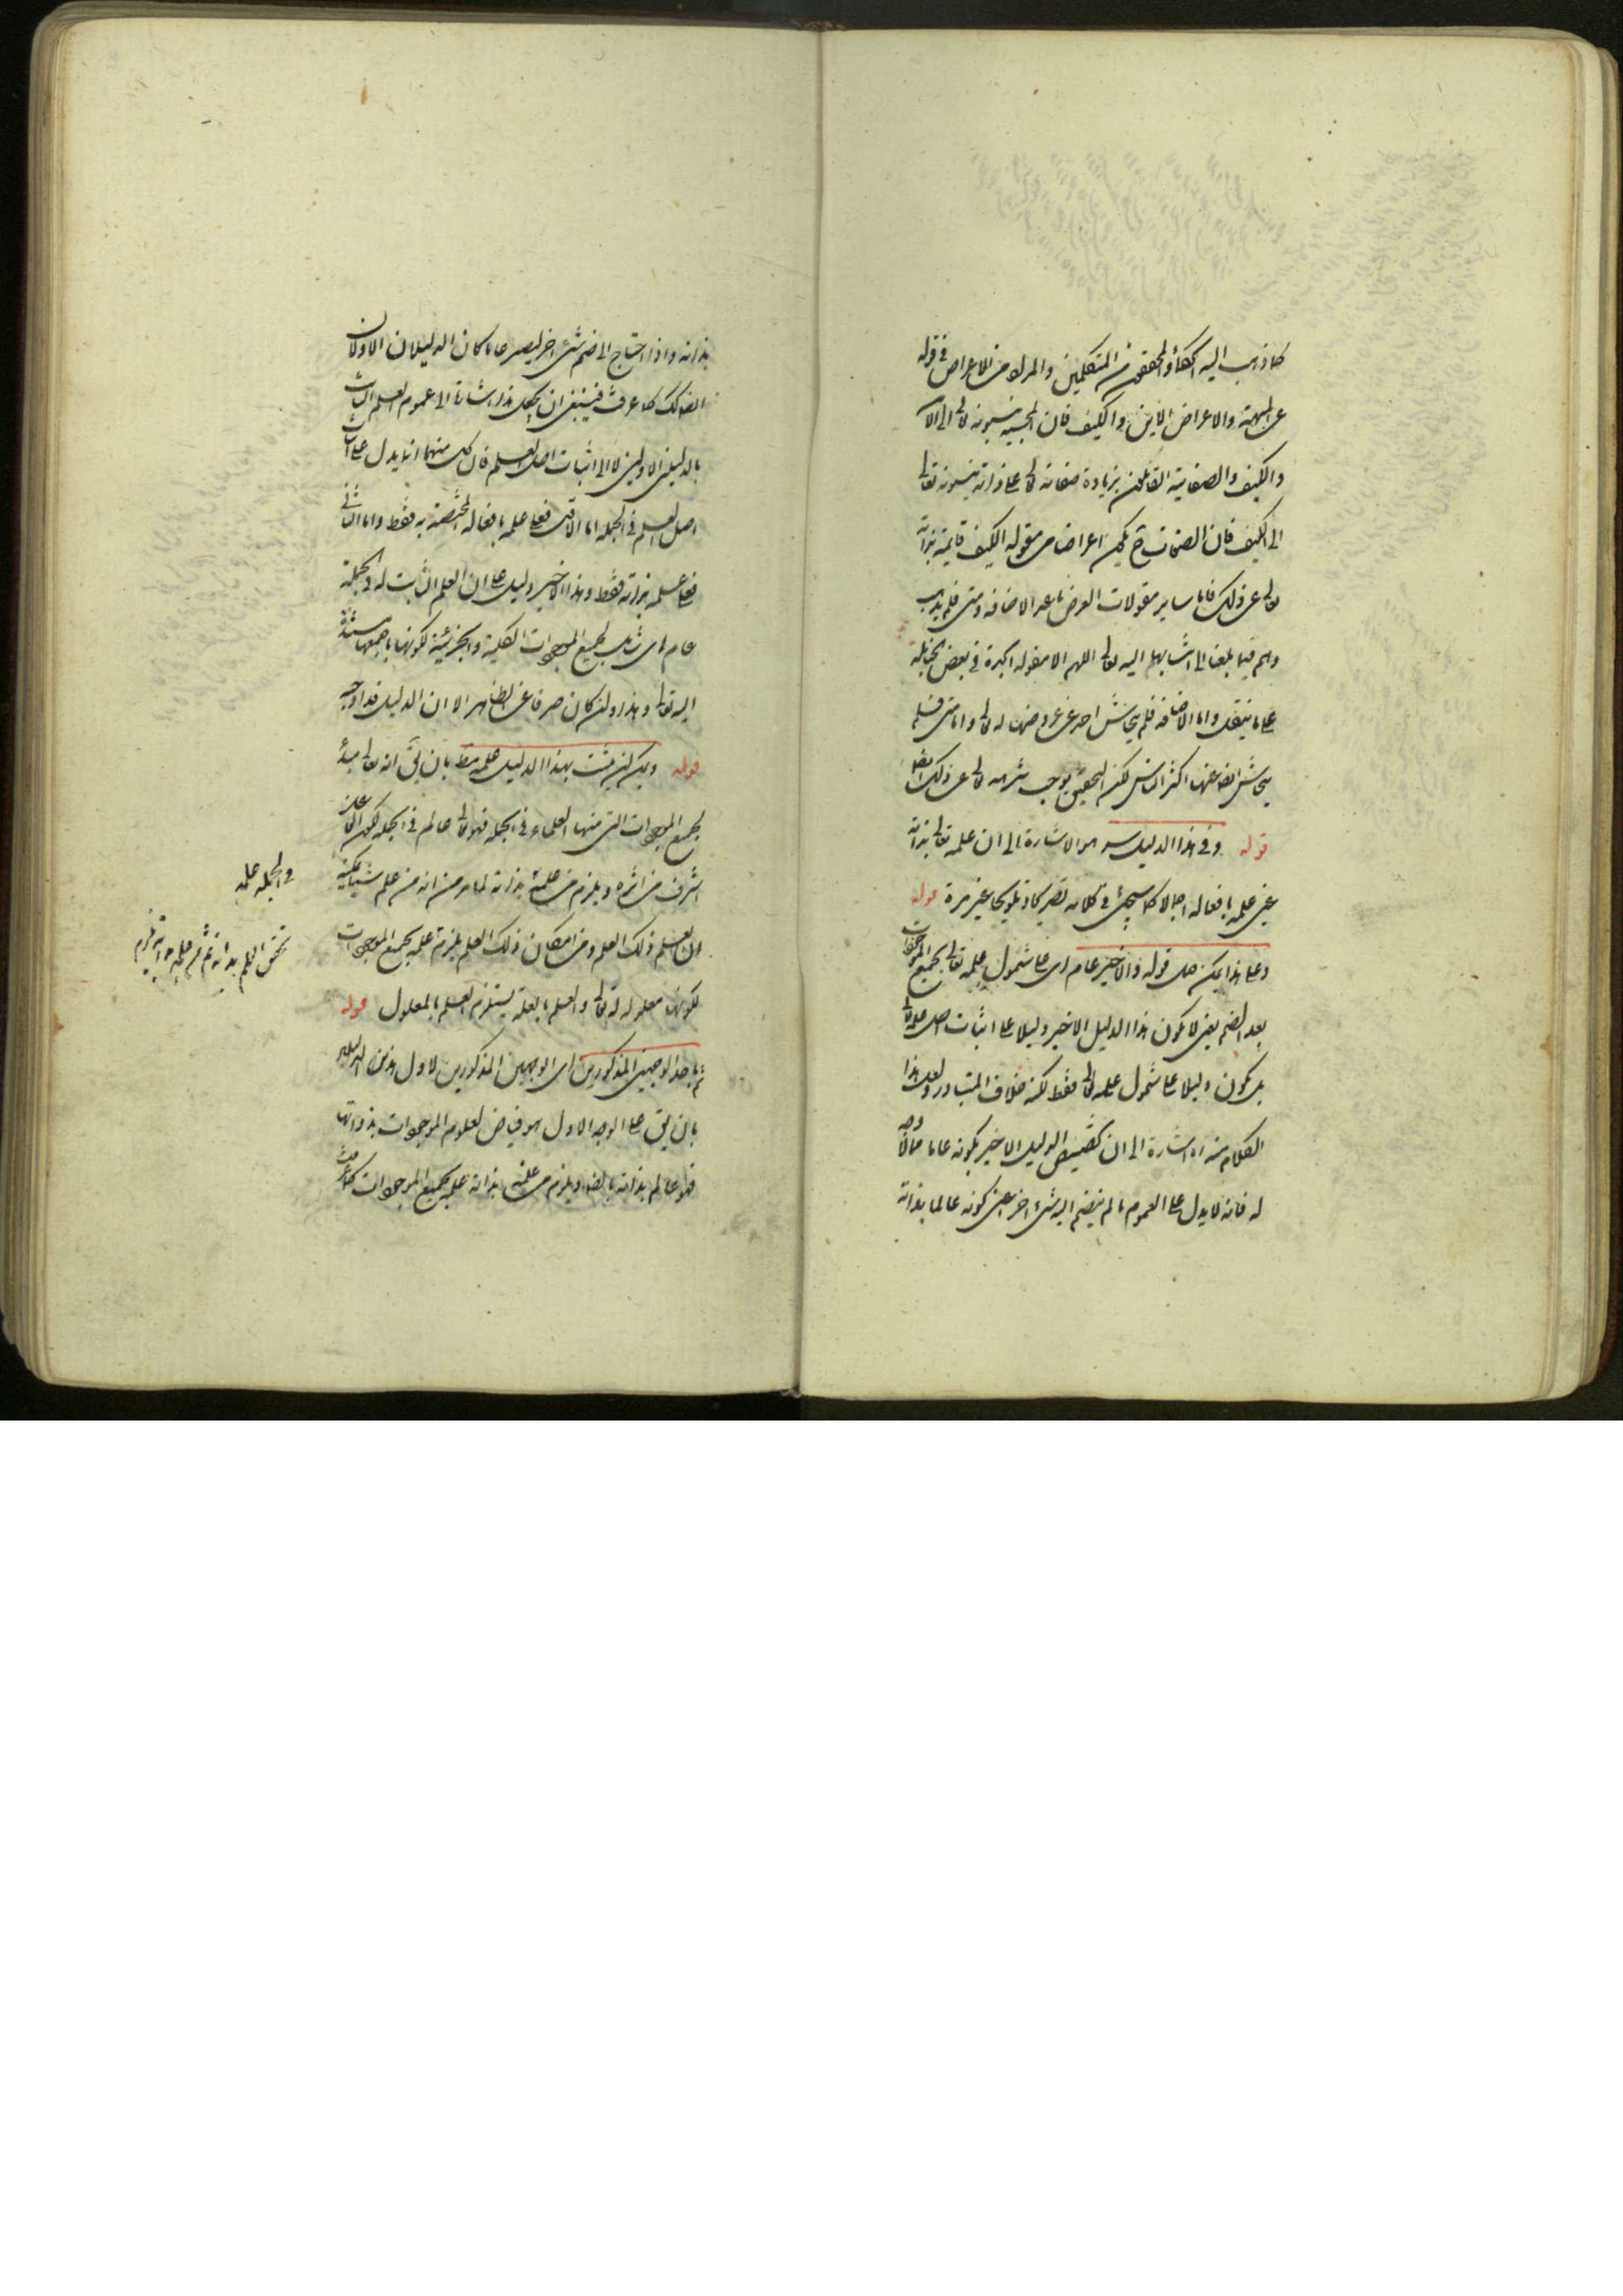 كما ذهب اليه الحكماء والمحققون من المتكلمين والمراد من الاعراض في قوله
عن الجهة والاعراض الاين والكيف فان المجسمة ينسبونه تعالى الى الاين
والكيف والصفاتية القائلون بزيادة صفاته تعالى على ذاته ينسبونه تعالى
الى الكيف فان الصفات ح يكون اعراضا من مقولة الكيف قايمة بذاته
تعالى عن ذلك فاما ساير مقولات العرض ما عدا الاضافة ومتى فلم يذهب
وهم فيما بلغنا الى انتسابها اليه تعالى اللهم الا مقولة الجدة في بعض الحنابلة
على ما ينقل واما الاضافة فلم يتحاش احد عن عروضها له تعالى واما متى فلم
يتحاش ايضا عنها اكثر الناس لكن التحقيق يوجب تنزيهه تعالى عن ذلك ايضا
قوله وفي هذا الدليل سر هو الاشارة الى ان علمه تعالى بذاته
عين علمه بافعاله اجمالا كما سيجئ في كلامه تصريحا وتلويحا غير مرة قوله
وعلى هذا يمكن حمل قوله والاخير عام اى على شمول علمه تعالى بجميع الموجودات
بعد الضم يعنى لا يكون هذا الدليل الاخير دليلا على اثبات اصل علمه تعالى
بل يكون دليلا على شمول علمه تعالى فقط لكنه خلاف المتبادر ولعل هذا
الكلام منه ره اشارة الى ان تخصيص الدليل الاخير بكونه عاما مما لا وجه
له فانه لا يدل على العموم ما لم ينضم اليه شئ اخر اعنى كونه عالما بذاته
بذاته واذا احتاج الى ضم شئ اخر ليصير عاما كان الدليلان الاولان
ايضا كك كما عرفت فينبغى ان يجعل هذا اشارة الى عموم العلم الثابت
بالدليلين الاولين لا الى اثبات اصل العلم فان كل منهما انما يدل على اثبات
اصل العلم في الجملة اما الاول فعلى علمه بافعاله المختصة به فقط واما الثاني
فعلى علمه بذاته فقط وهذا الاخير دليل على ان العلم الثابت له في الجملة
عام اى شامل لجميع الموجودات الكلية والجزئية لكونها باجمعها مستندة
اليه تعالى وهذا وان كان صرفا عن الظاهر الا ان الدليل قد اوجبه
قوله ولك ان تثبت بهذا الدليل علمه مط بان يق انه تعالى مبدأ
لجميع الموجودات التى منها العلماء في الجملة فهو تعالى عالم في الجملة لكون الفاعل
اشرف من اثره ويلزم من علمه بذاته لما مر من انه من علم شيئا يمكنه
ان يعلم ذلك العلم ومن امكان ذلك العلم يلزمه علمه بجميع الموجودات
لكونها معلولة له تعالى والعلم بالعلة يستلزم العلم بالمعلول قوله
ثم باحد الوجهين المذكورين اى الوجهين المذكورين لاول هذين الدليلين
بان يق على الوجه الاول هو فياض لعلوم الموجودات بذواتها
فهو عالم بذاته بالضرورة ويلزم من علمه بذاته علمه بجميع الموجودات كما عرفت
في الجملة علمه